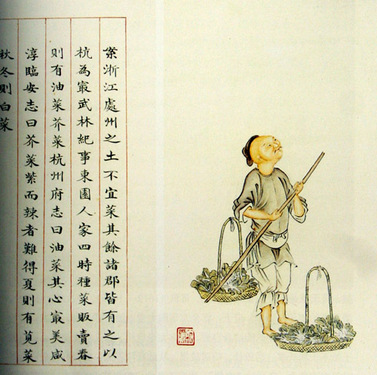 案浙江處州之土不宜菜其餘諸郡皆有之以
杭為㝡武林紀事東園人家四時種菜販賣春
則有油菜芥菜杭州府志曰油菜其心㝡美咸
淳臨安志曰芥菜紫而辣者難得夏則有莧菜
秋冬則白菜